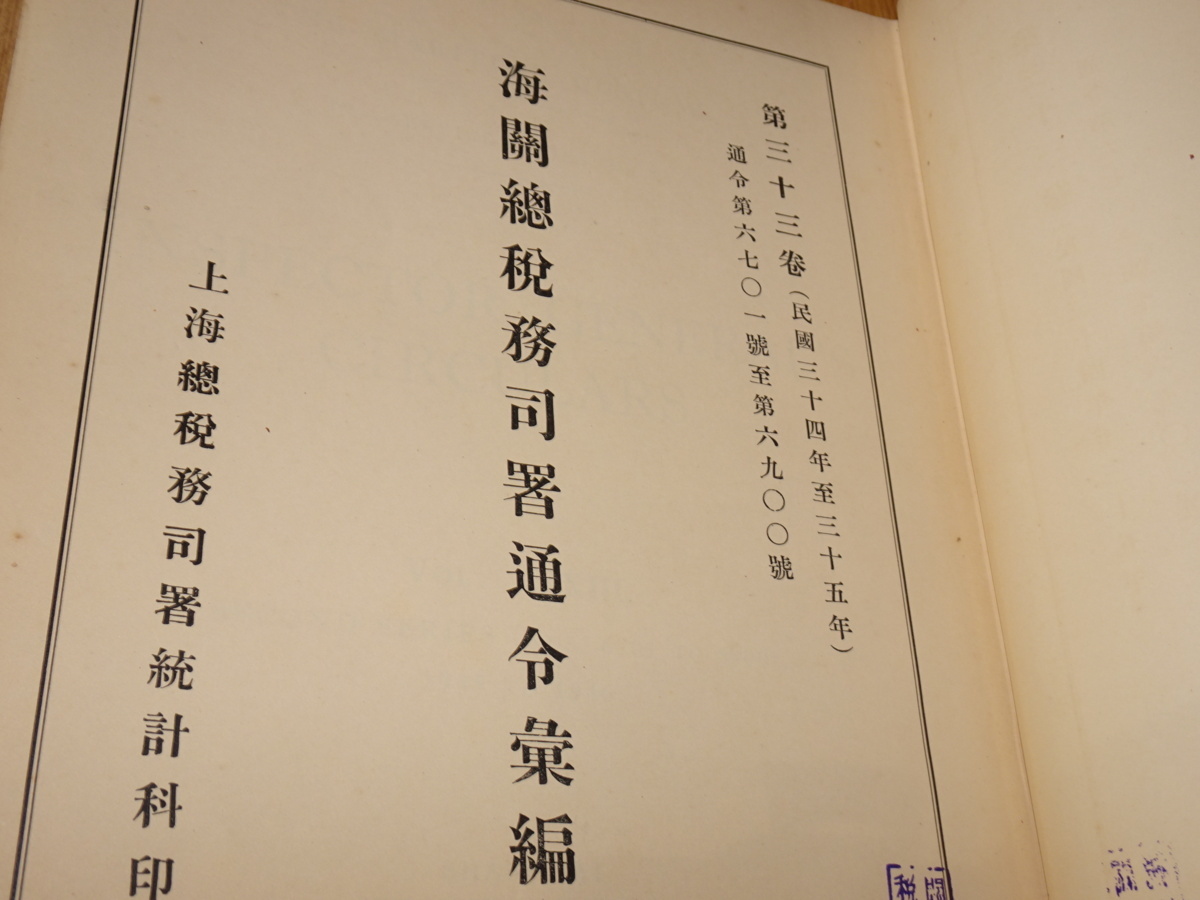 第三十三卷(民國三十四年至三十五年)
通令第六七〇一號至第六九〇〇號
海關總稅務司署通令彙編
上海總稅務司署統計科印
關
稅